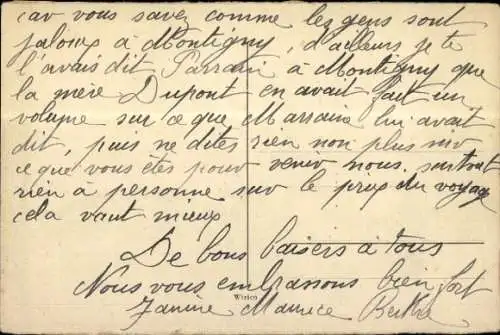 car vous savez comme les gens sont
jaloux à Montigny, d'ailleurs je te
l'avais dit Parrain à Montigny que
la mère Dupont en avait fait un
volume sur ce que Marraine lui avait
dit, puis ne dites rien non plus sur
ce que vous êtes pour venir nous, surtout
rien à personne sur le prix du voyage
cela vaut mieux
De bons baisers à tous
Nous vous embrassons bien fort
Janine Maurice Berthe